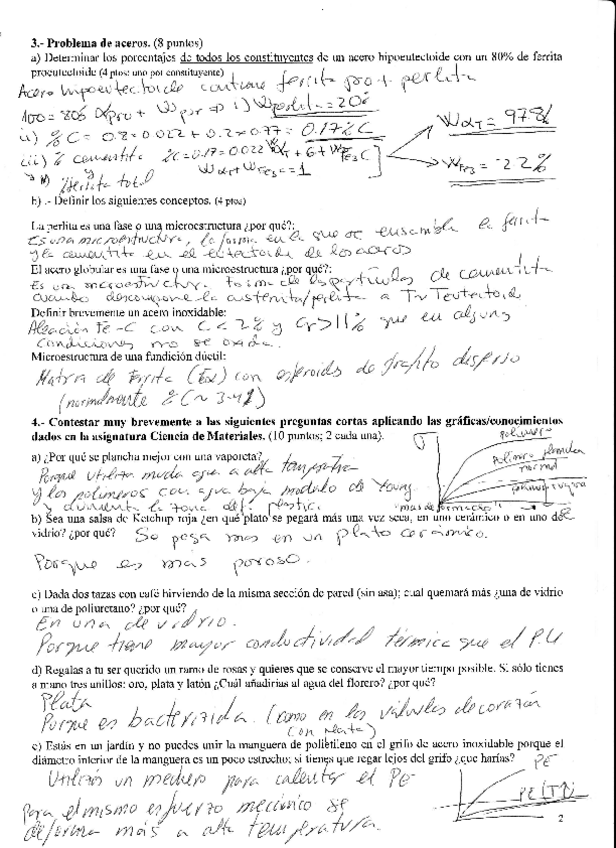 3.- Problema de aceros. (8 puntos)
a) Determinar los porcentajes de todos los constituyentes de un acero hipoeutectoide con un 80% de ferrita
proeutectoide (4 ptos: uno por constituyente)
Acero hipoeutectoide contiene ferrita pro + perlita
ii) %C = 0.8·0.022 + 0.2·0.77 = 0.17%C
WαT = 97.8%
WFe3 = 2.2%
Ferrita total
b) .- Definir los siguientes conceptos. (4 ptos)
La perlita es una fase o una microestructura ¿por qué?:
Es una microestructura, la forma en la que se ensambla la ferrita
y la cementita en el eutectoide de los aceros
El acero globular es una fase o una microestructura ¿por qué?:
Es una microestructura de las partículas de cementita
cuando descompone la austenita/perlita a T~Teutectoide
Definir brevemente un acero inoxidable:
Aleación Fe-C con C<2% y Cr>11% que en algunas
condiciones no se oxida.
Microestructura de una fundición dúctil:
Matriz de ferrita (Feα) con esferoides de grafito disperso
(normalmente %C ~ 3-4%)
4.- Contestar muy brevemente a las siguientes preguntas cortas aplicando las gráficas/conocimientos
dados en la asignatura Ciencia de Materiales. (10 puntos; 2 cada una).
a) ¿Por qué se plancha mejor con una vaporeta?
Porque utiliza mucha agua a alta temperatura
y los polímeros con agua baja modulo de Young
y aumenta la zona def. plastic.
polímero
normal
"mas deformacho"
b) Sea una salsa de Ketchup roja ¿en qué plato se pegará más una vez seca, en uno cerámico o en uno de
vidrio? ¿por qué? Se pega mas en un plato cerámico.
Porque es más poroso.
c) Dada dos tazas con café hirviendo de la misma sección de pared (sin asa); cual quemará más ¿una de vidrio
o una de poliuretano? ¿por qué?
En una de vidrio.
Porque tiene mayor conductividad térmica que el P.U
d) Regalas a tu ser querido un ramo de rosas y quieres que se conserve el mayor tiempo posible. Si sólo tienes
a mano tres anillos: oro, plata y latón ¿Cuál añadirías al agua del florero? ¿por qué?
Plata
Porque es bactericida. (como en las válvulas de corazón
con plata)
e) Estás en un jardín y no puedes unir la manguera de polietileno en el grifo de acero inoxidable porque el
diámetro interior de la manguera es un poco estrecho; si tienes que regar lejos del grifo ¿que harías?
Utilizas un mechero para calentar el PE
PE
PE(T↑)
Para el mismo esfuerzo mecánico se
deforma más a alta temperatura.
2